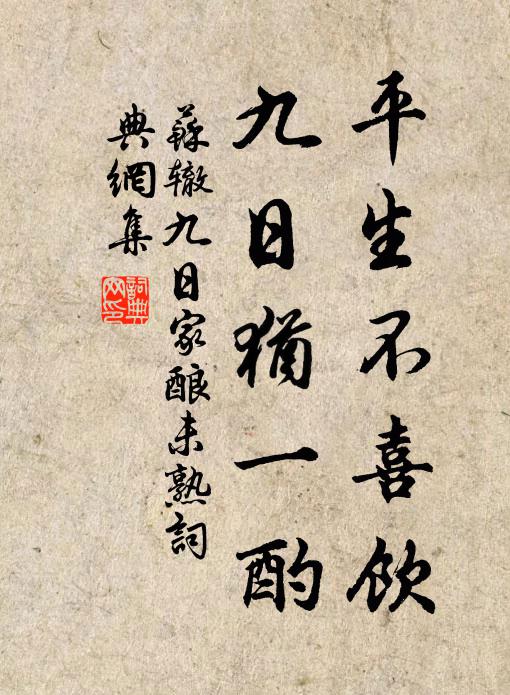 平生不喜飲
九日猶一酌
蘇辙九日家酿未熟詞
典網集
詞典网印